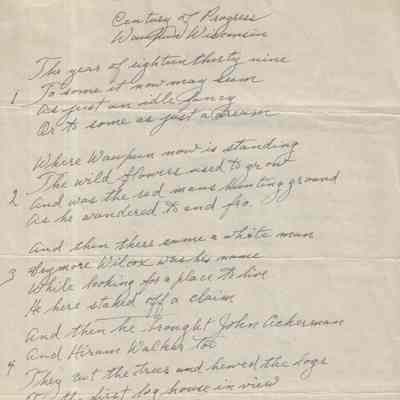 Century of Progress
Waupun Wisconsin
The year of eighteen thirty nine
1 To some it now may seem
As just an idle fancy
Or to some as just a dream
Where Waupun now is standing
2 The wild flowers used to grow
And was the red mans hunting ground
As he wandered to and fro.
And then there came a white man
3 Seymore Wilcox was his name
While looking for a place to live
He here staked off a claim
And then he brought John Ackerman
4 And Hiram Walker too
They cut the trees and hewed the logs
the first log house in view